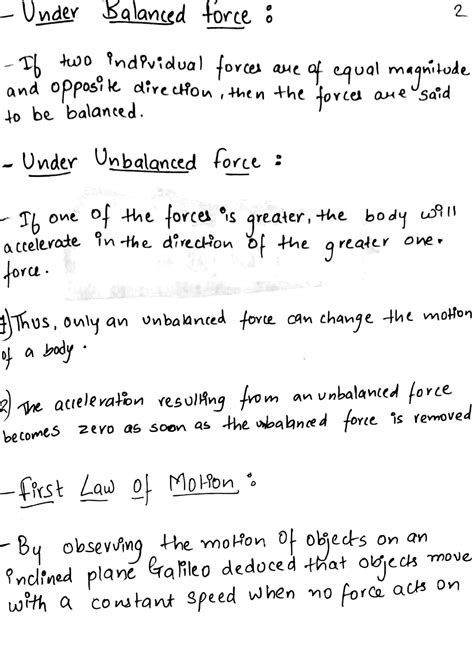 - Under Balanced force : 2
- If two individual forces are of equal magnitude
and opposite direction, then the forces are said
to be balanced.
- Under Unbalanced force :
- If one of the forces is greater, the body will
accelerate in the direction of the greater one.
force.
1) Thus, only an unbalanced force can change the motion
of a body.
2) The acceleration resulting from an unbalanced force
becomes zero as soon as the unbalanced force is removed
- First Law of Motion :
- By observing the motion of objects on an
inclined plane Galileo deduced that objects move
with a constant speed when no force acts on